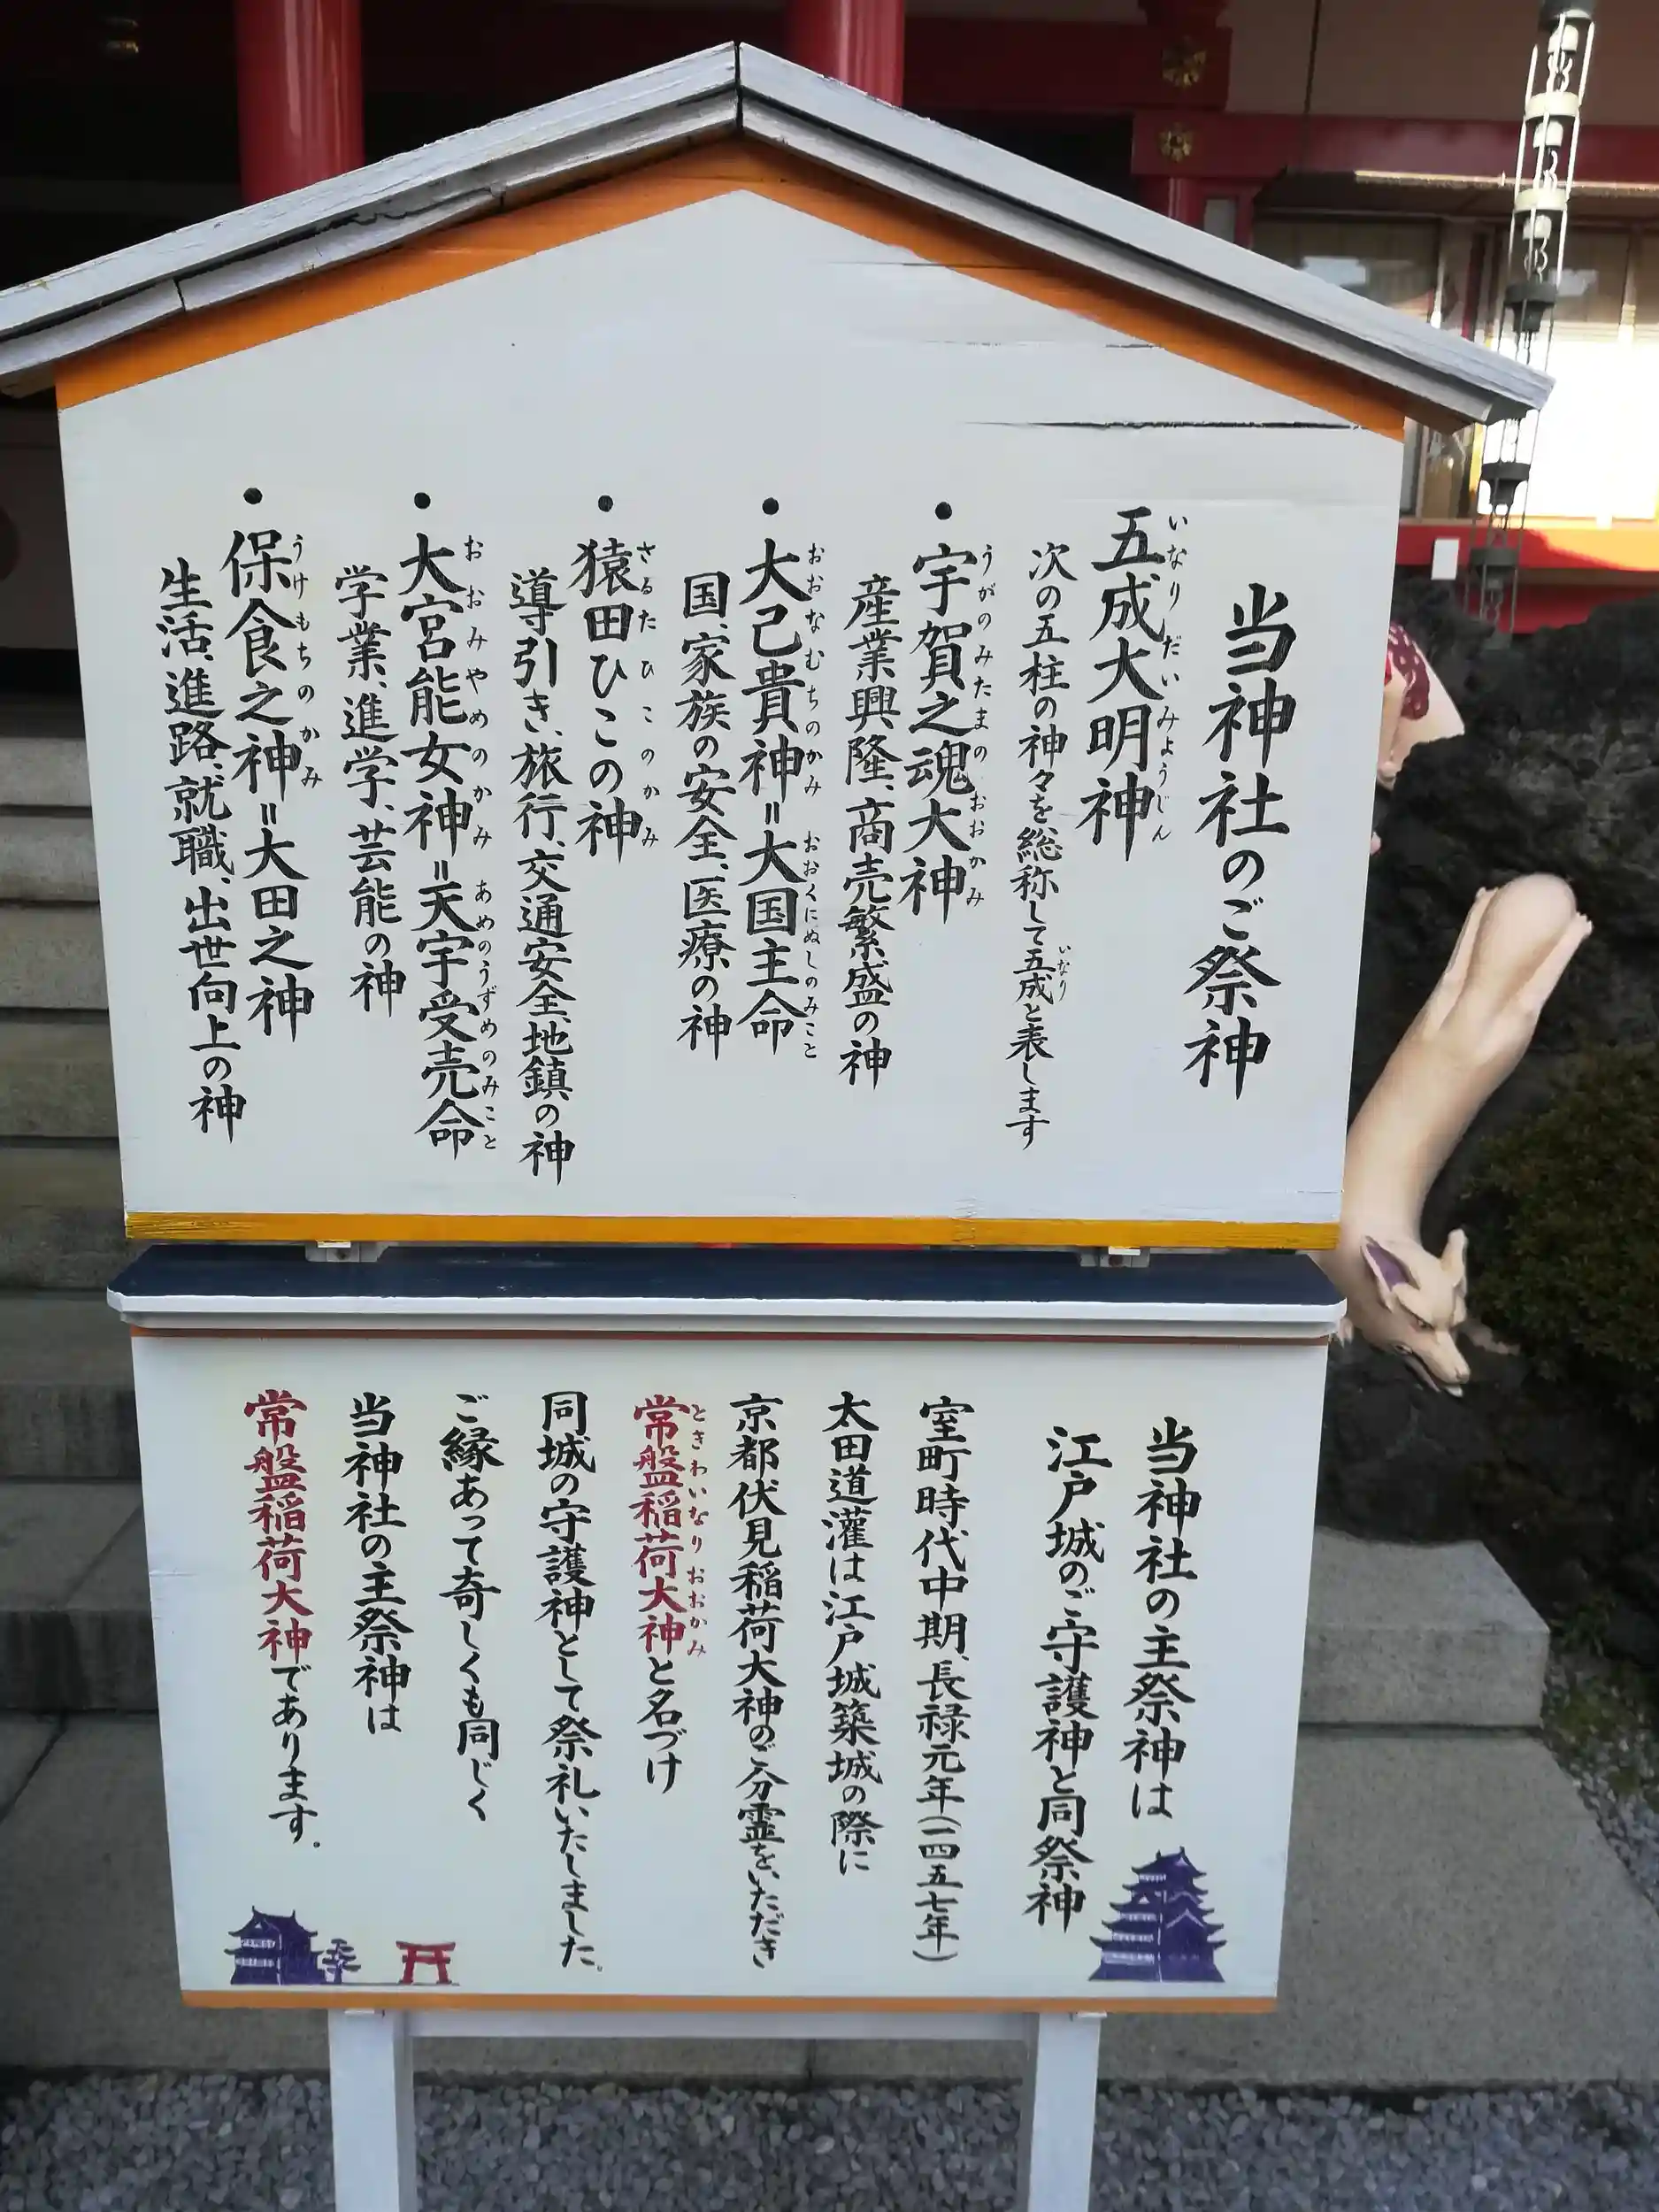 当神社のご祭神
五成大明神
いなりだいみょうじん
次の五柱の神々を総称して五成と表します
いなり
・宇賀之魂大神
うがのみたまのおおかみ
産業興隆、商売繁盛の神
・大己貴神＝大国主命
おおなむちのかみ おおくにぬしのみこと
国、家族の安全、医療の神
・猿田ひこの神
さるたひこのかみ
導引き、旅行、交通安全、地鎮の神
・大宮能女神＝天宇受売命
おおみやめのかみ あめのうずめのみこと
学業、進学、芸能の神
・保食之神＝大田之神
うけもちのかみ
生活、進路、就職、出世向上の神
当神社の主祭神は
江戸城のご守護神と同祭神
室町時代中期、長禄元年(一四五七年)
太田道灌は江戸城築城の際に
京都伏見稲荷大神のご分霊を、いただき
常盤稲荷大神と名づけ
ときわいなりおおかみ
同城の守護神として祭礼いたしました。
ご縁あって奇しくも同じく
当神社の主祭神は
常盤稲荷大神であります。